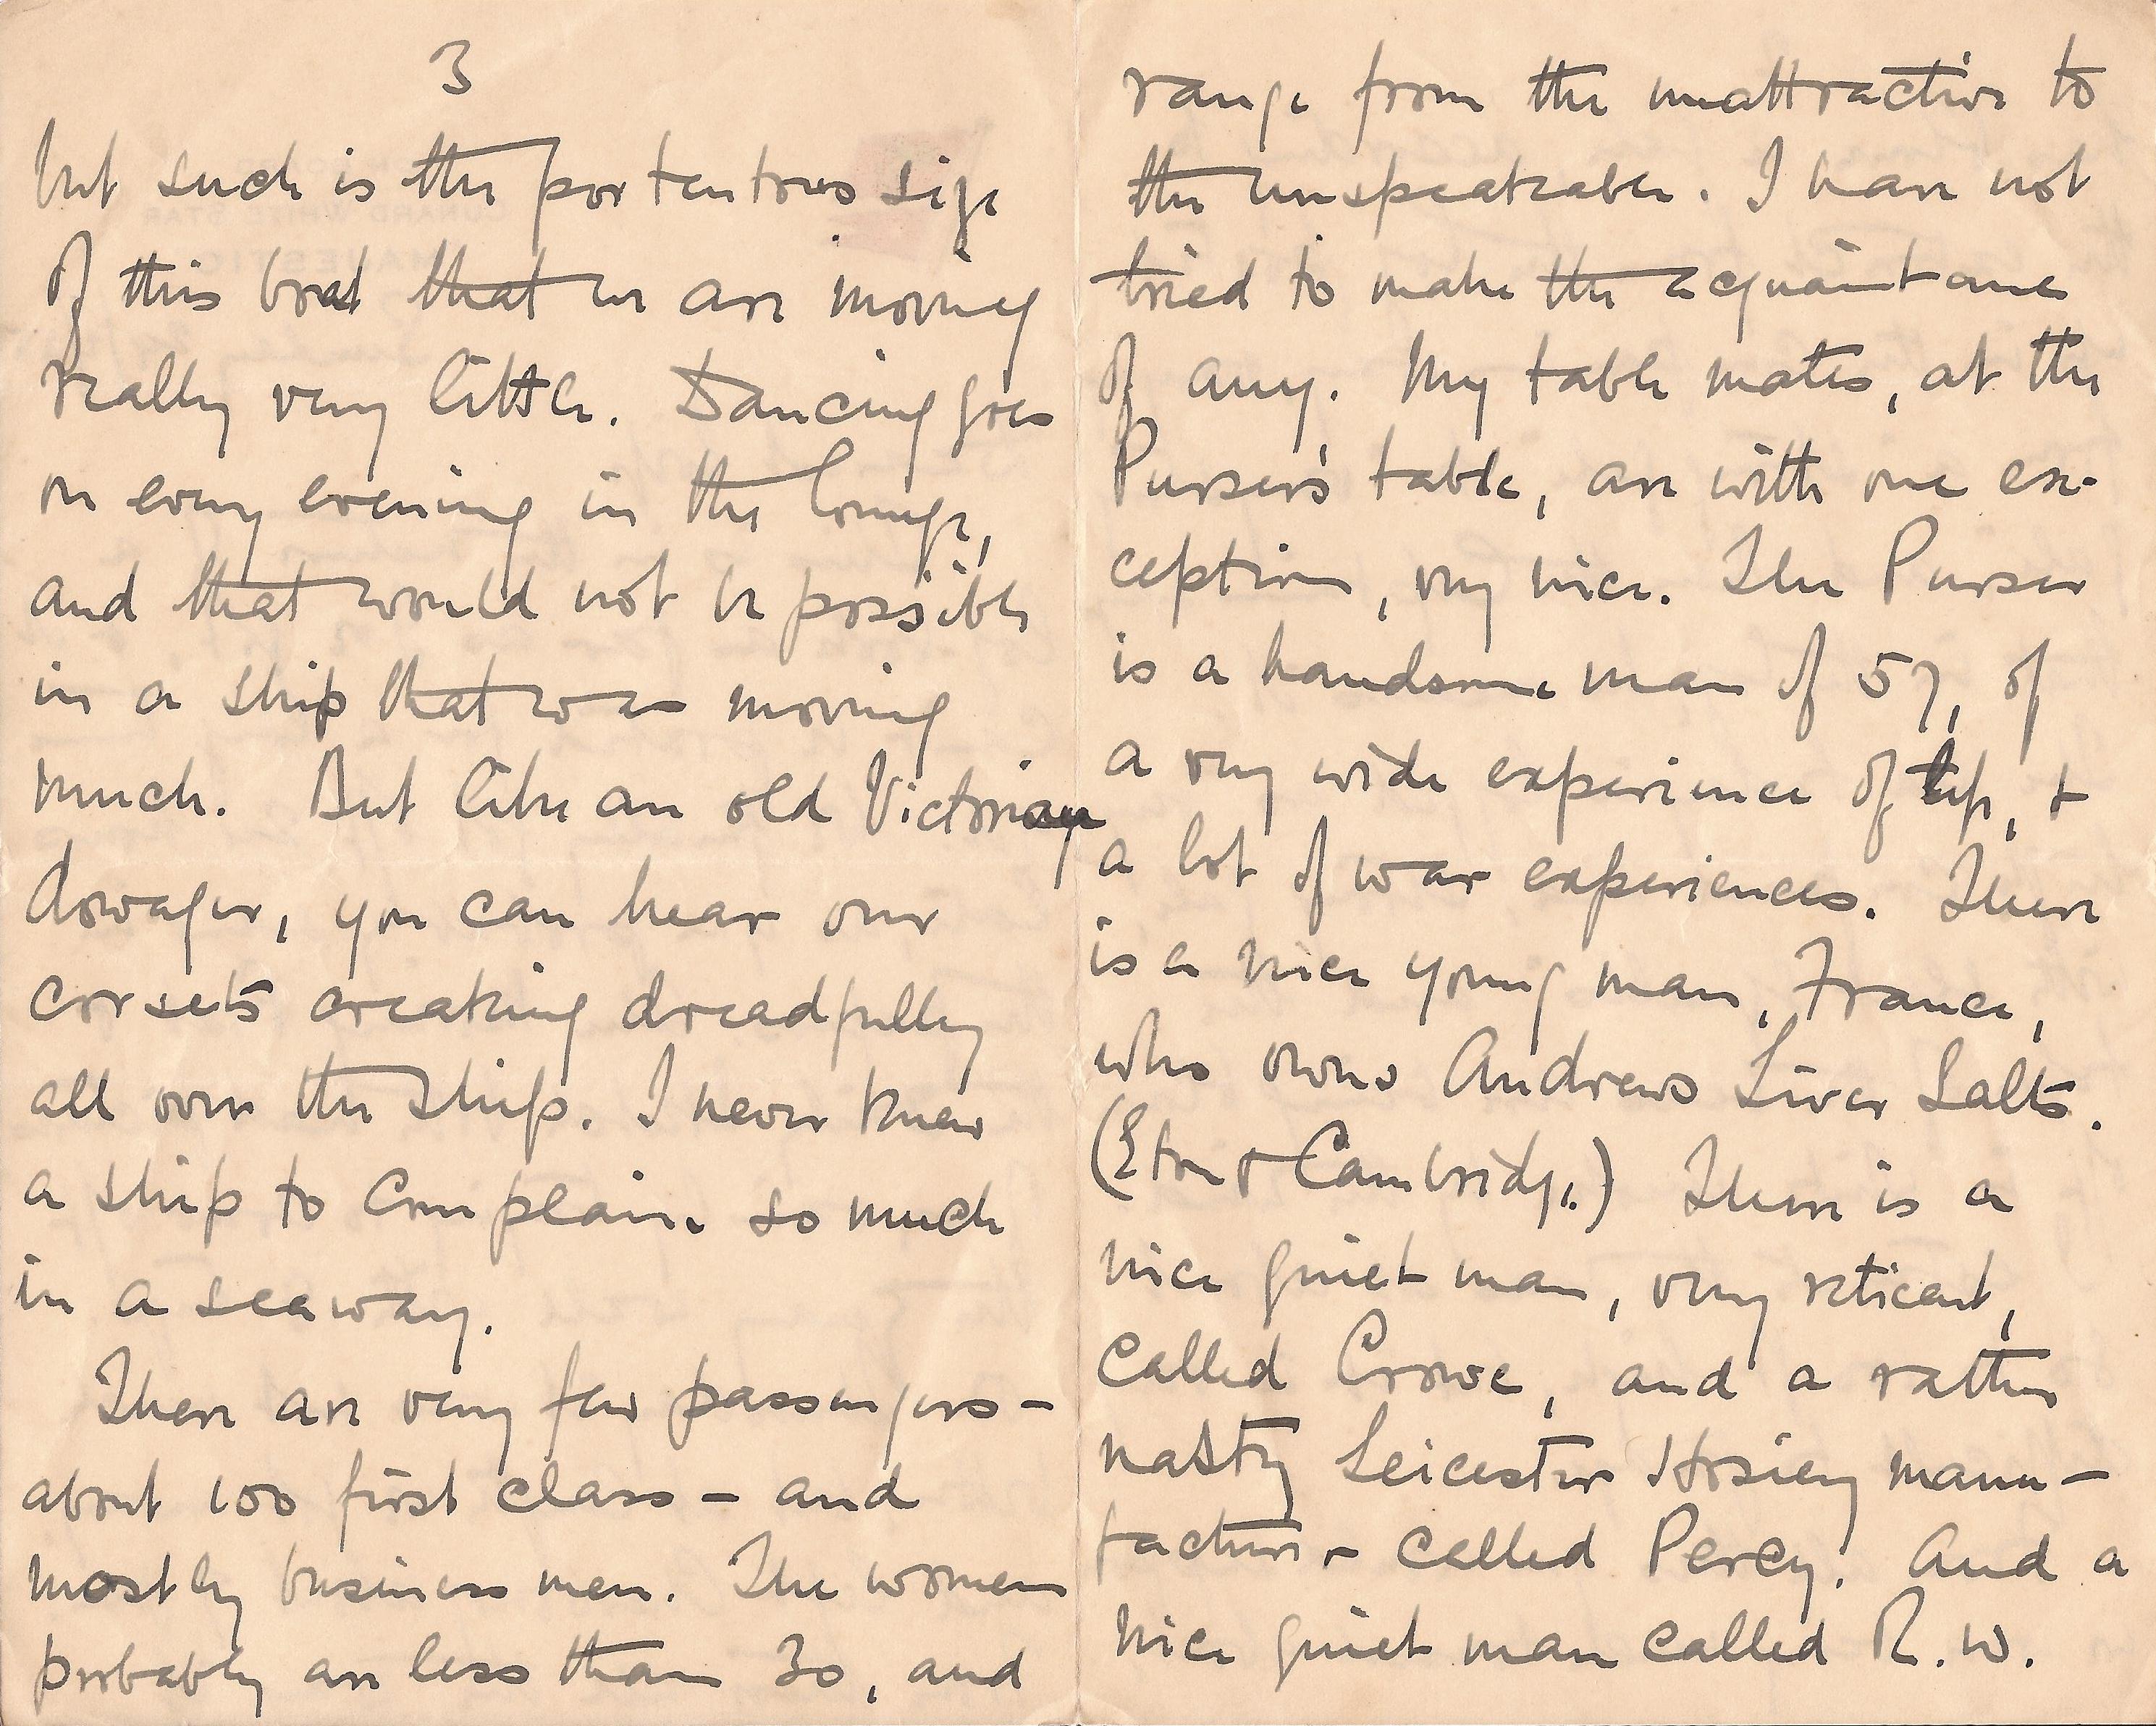 3
but such is the portentous size
of this boat that we are moving
really very little. Dancing goes
on every evening in the lounge,
and that would not be possible
in a ship that was moving
much. But like an old Victorian
dowager, you can hear our
corsets creaking dreadfully
all over the ship. I never knew
a ship to complain so much
in a seaway.
There are very few passengers -
about 100 first class - and
mostly business men. The women
probably are less than 30, and
range from the unattractive to
the unspeakable. I have not
tried to make the acquaintance
of any. My table mates, at the
Purser's table, are with one ex-
ception, very nice. The Purser
is a handsome man of 57, of
a very wide experience of life, +
a lot of war experiences. There
is a nice young man, France,
who owns Andrews Liver Salts.
(Eton + Cambridge.) There is a
nice quiet man, very reticent,
called Crowe, and a rather
nasty Leicester Hosiery manu-
facturer called Percy. And a
nice quiet man called R.W.
CUNARD WHITE STAR
MAJESTIC